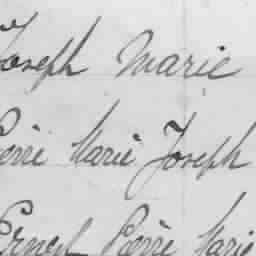 Joseph Marie
Pierre Marie Joseph
Ernest Pierre Marie